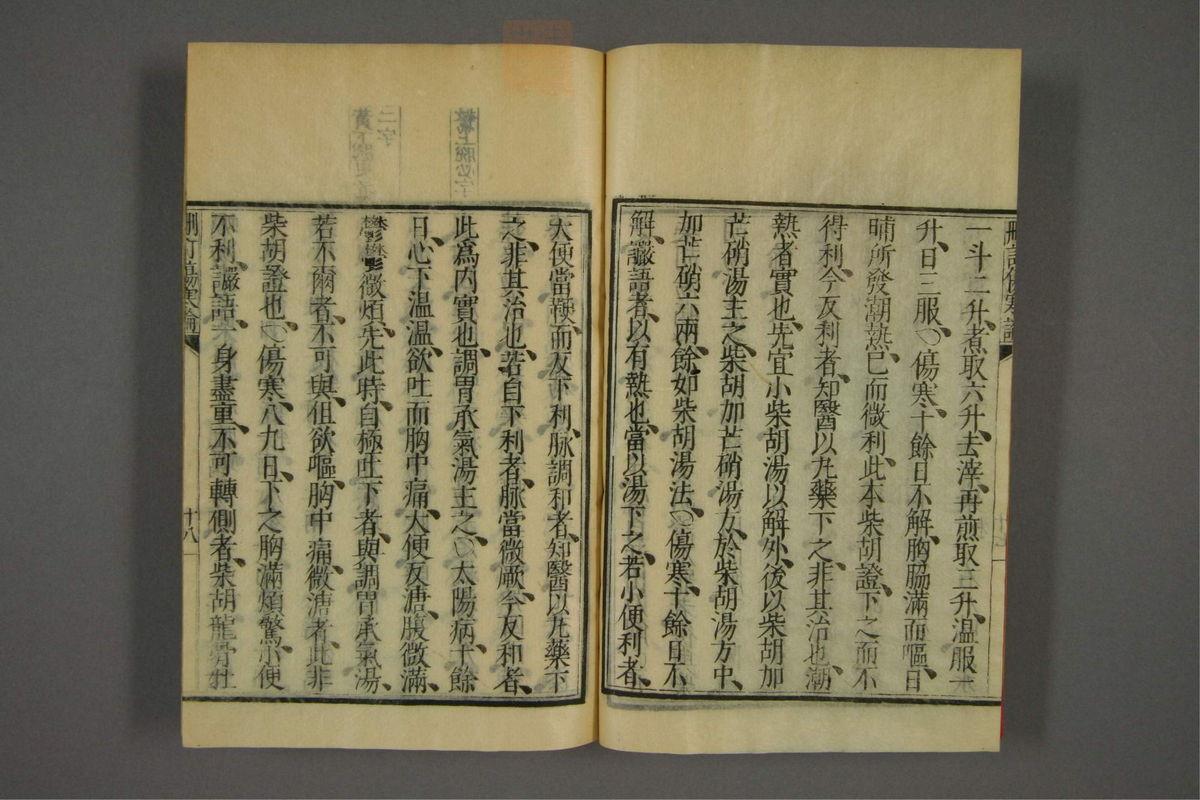 刪訂傷寒論
一斗二升、煮取六升、去滓、再煎取三升、溫服一
升、日三服、〇傷寒十餘日不解、胸脇滿而嘔、日
晡所發潮熱、已而微利、此本柴胡證、下之而不
得利、今反利者、知醫以丸藥下之、非其治也、潮
熱者實也、先宜小柴胡湯以解外、後以柴胡加
芒硝湯主之、柴胡加芒硝湯方、於柴胡湯方中、
加芒硝六兩、餘如柴胡湯法、〇傷寒十餘日不
解、讝語者、以有熱也、當以湯下之、若小便利者、
大便當鞕、而反下利、脈調和者、知醫以丸藥下
之、非其治也、若自下利者、脈當微厥、今反和者、
此爲內實也、調胃承氣湯主之、〇太陽病、十餘
日、心下溫溫欲吐、而胸中痛、大便反溏、腹微滿、
鬱鬱微煩、先此時、自極吐下者、與調胃承氣湯、
若不爾者、不可與、但欲嘔、胸中痛、微溏者、此非
柴胡證也、〇傷寒、八九日、下之、胸滿煩驚、小便
不利、讝語、一身盡重、不可轉側者、柴胡龍骨牡
刪訂傷寒論
十八